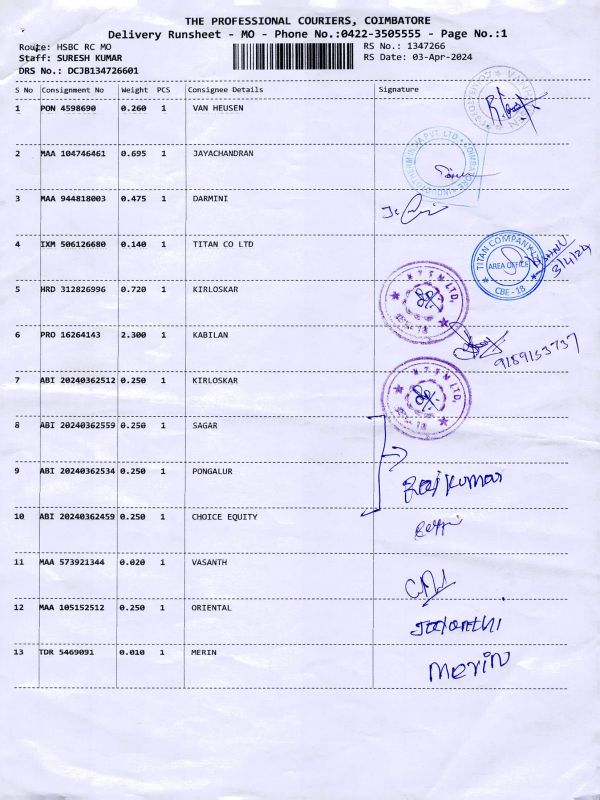 THE PROFESSIONAL COURIERS, COIMBATORE
Delivery Runsheet - MO - Phone No.:0422-3505555 - Page No.:1
Route: HSBC RC MO
RS No.: 1347266
Staff: SURESH KUMAR
RS Date: 03-Apr-2024
DRS No.: DCJB134726601
S No Consignment No Weight PCS Consignee Details Signature
1 PON 4598690 0.260 1 VAN HEUSEN
2 MAA 104746461 0.695 1 JAYACHANDRAN
3 MAA 944818003 0.475 1 DARMINI
4 IXM 506126680 0.140 1 TITAN CO LTD
TITAN COMPANY
AREA OFFICE
CBE - 18
3/4/24
5 HRD 312826996 0.720 1 KIRLOSKAR
6 PRO 16264143 2.300 1 KABILAN
9189153737
7 ABI 20240362512 0.250 1 KIRLOSKAR
8 ABI 20240362559 0.250 1 SAGAR
9 ABI 20240362534 0.250 1 PONGALUR
Rajkumar
10 ABI 20240362459 0.250 1 CHOICE EQUITY
11 MAA 573921344 0.020 1 VASANTH
12 MAA 105152512 0.250 1 ORIENTAL
13 TDR 5469091 0.010 1 MERIN
Merin